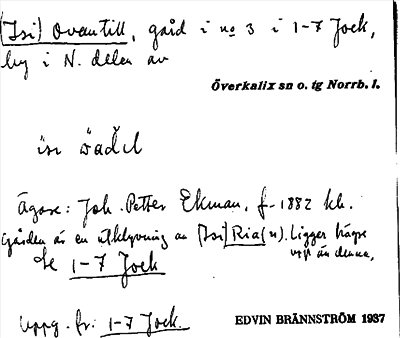 (Isi) Ovantill, gård i no 3 i 1-7 Jock,
by i N. delen av
Överkalix sn o. tg Norrb. l.
Ägare: Joh. Petter Ekman, f. 1882 kh.
Gården är en utklyvning av (Isi) Ria(n). Ligger högre
upp än denna,
Se 1-7 Jock
Uppg. fr: 1-7 Jock.
EDVIN BRÄNNSTRÖM 1937